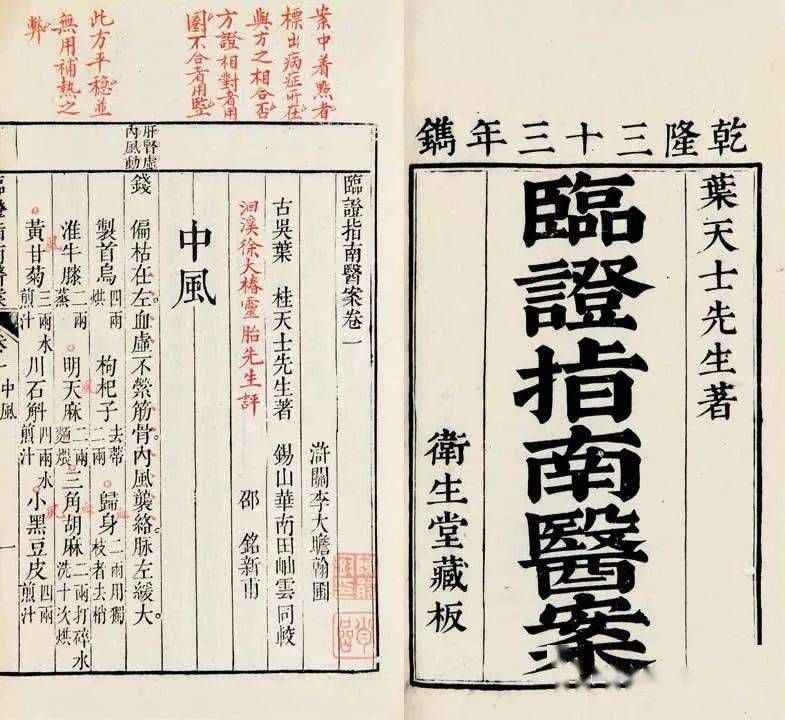 乾隆三十三年鐫
葉天士先生著
臨證指南醫案
衛生堂藏板
案中着點者
標出病症所在
與方之相合否
方證相對者用
圈不合者用竪
此方平穏並
無用補熱之
弊
肝腎虛
內風動
臨證指南醫案卷一
滸關李大瞻翰圃
古吳葉 桂天士先生著 錫山華南田岫雲同較
洄溪徐大椿靈胎先生評 邵 銘新甫
中風
錢 偏枯在左。血虛不縈筋骨。內風襲絡。脉左緩大。
製首烏 四兩烘 枸杞子 去蒂二兩 歸身 二兩用獨枝者去梢
淮牛膝 二兩蒸 明天麻 二兩麵煨 三角胡麻 二兩打碎水洗十次烘
黃甘菊 三兩水煎汁 川石斛 四兩水煎汁 小黑豆皮 四兩煎汁
臨證指南醫案 卷一 中風 一